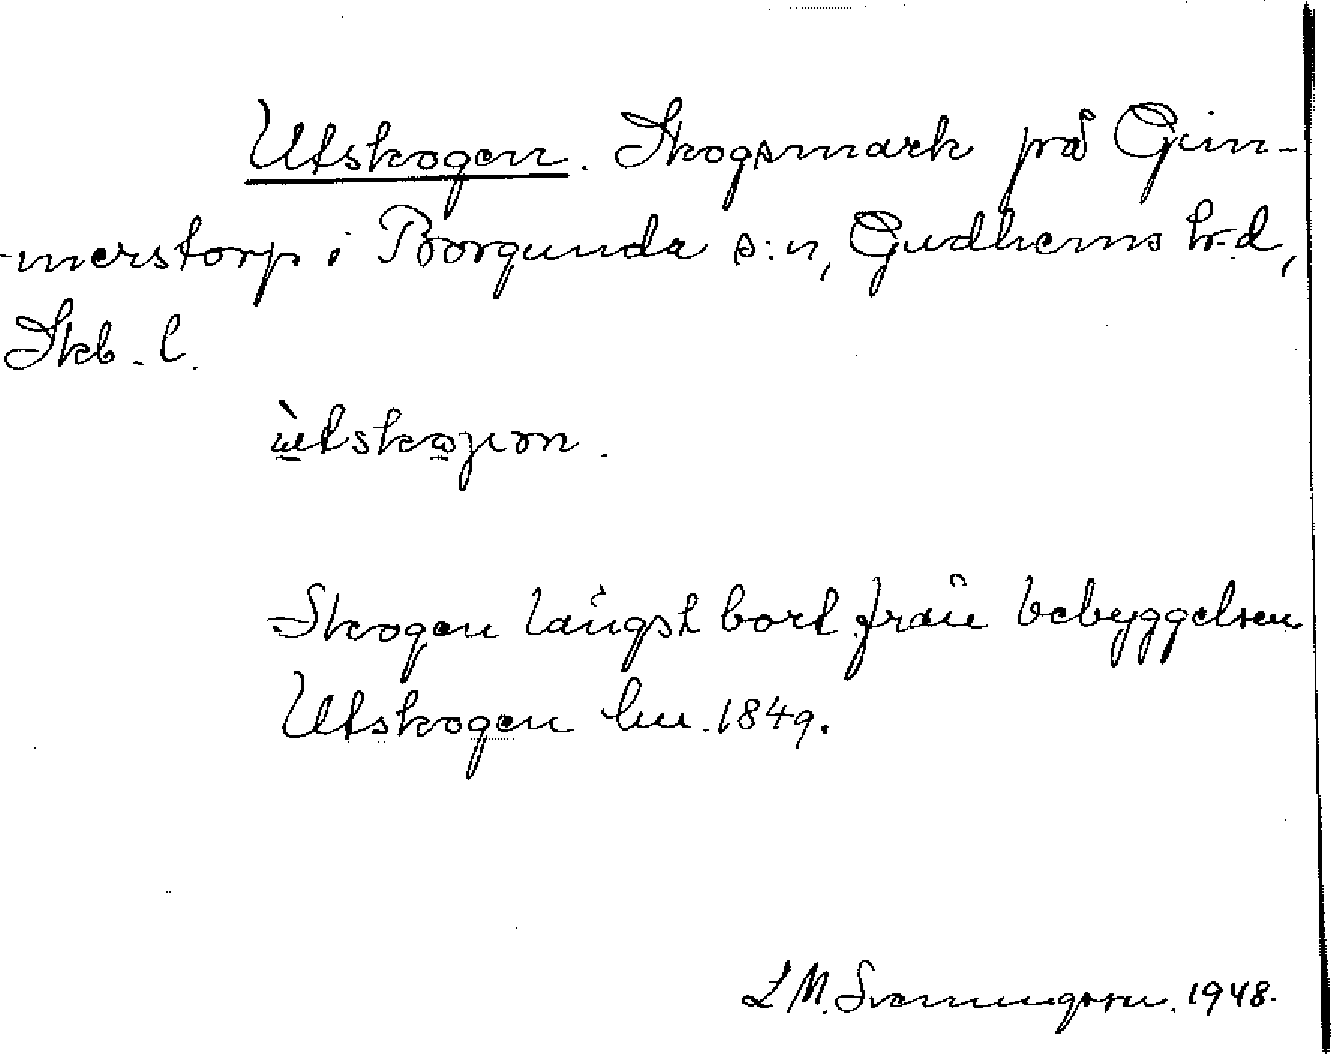 Utskogen. Skogsmark på Gim-
merstorp i Borgunda s:n, Gudhems h-d,
Skb. l.
ùtskoɲən.
Skogen längst bort från bebyggelsen
Utskogen lm. 1849.
L M. Svenungsson. 1948.